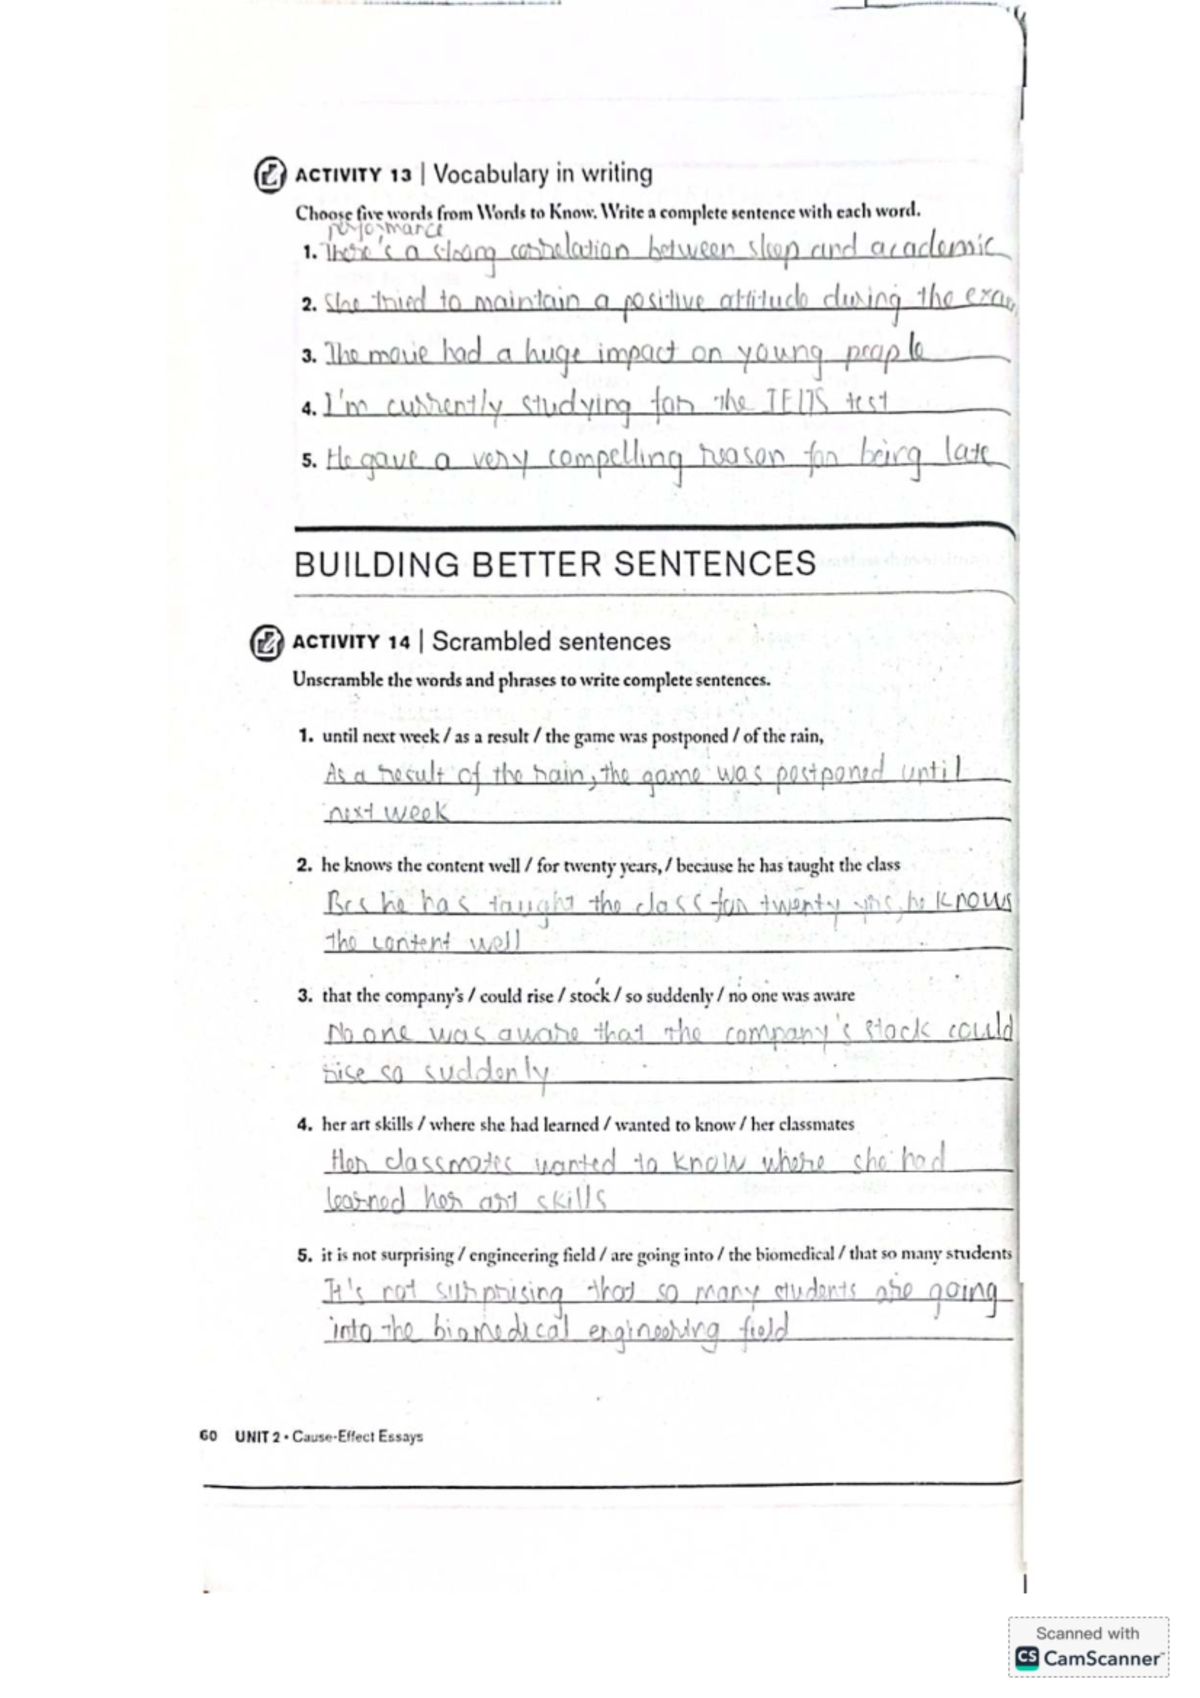 ACTIVITY 13 | Vocabulary in writing
Choose five words from Words to Know. Write a complete sentence with each word.
performance
1. There's a strong correlation between sleep and academic
2. She tried to maintain a positive attitude during the exam
3. The movie had a huge impact on young people
4. I'm currently studying for the IELTS test
5. He gave a very compelling reason for being late
BUILDING BETTER SENTENCES
ACTIVITY 14 | Scrambled sentences
Unscramble the words and phrases to write complete sentences.
1. until next week / as a result / the game was postponed / of the rain,
As a result of the rain, the game was postponed until
next week
2. he knows the content well / for twenty years, / because he has taught the class
Bcs he has taught the class for twenty yrs, he knows
the content well
3. that the company's / could rise / stock / so suddenly / no one was aware
No one was aware that the company's stock could
rise so suddenly
4. her art skills / where she had learned / wanted to know / her classmates
Her classmates wanted to know where she had
learned her art skills
5. it is not surprising / engineering field / are going into / the biomedical / that so many students
It's not surprising that so many students are going
into the biomedical engineering field
60 UNIT 2 • Cause-Effect Essays
Scanned with
CS CamScanner